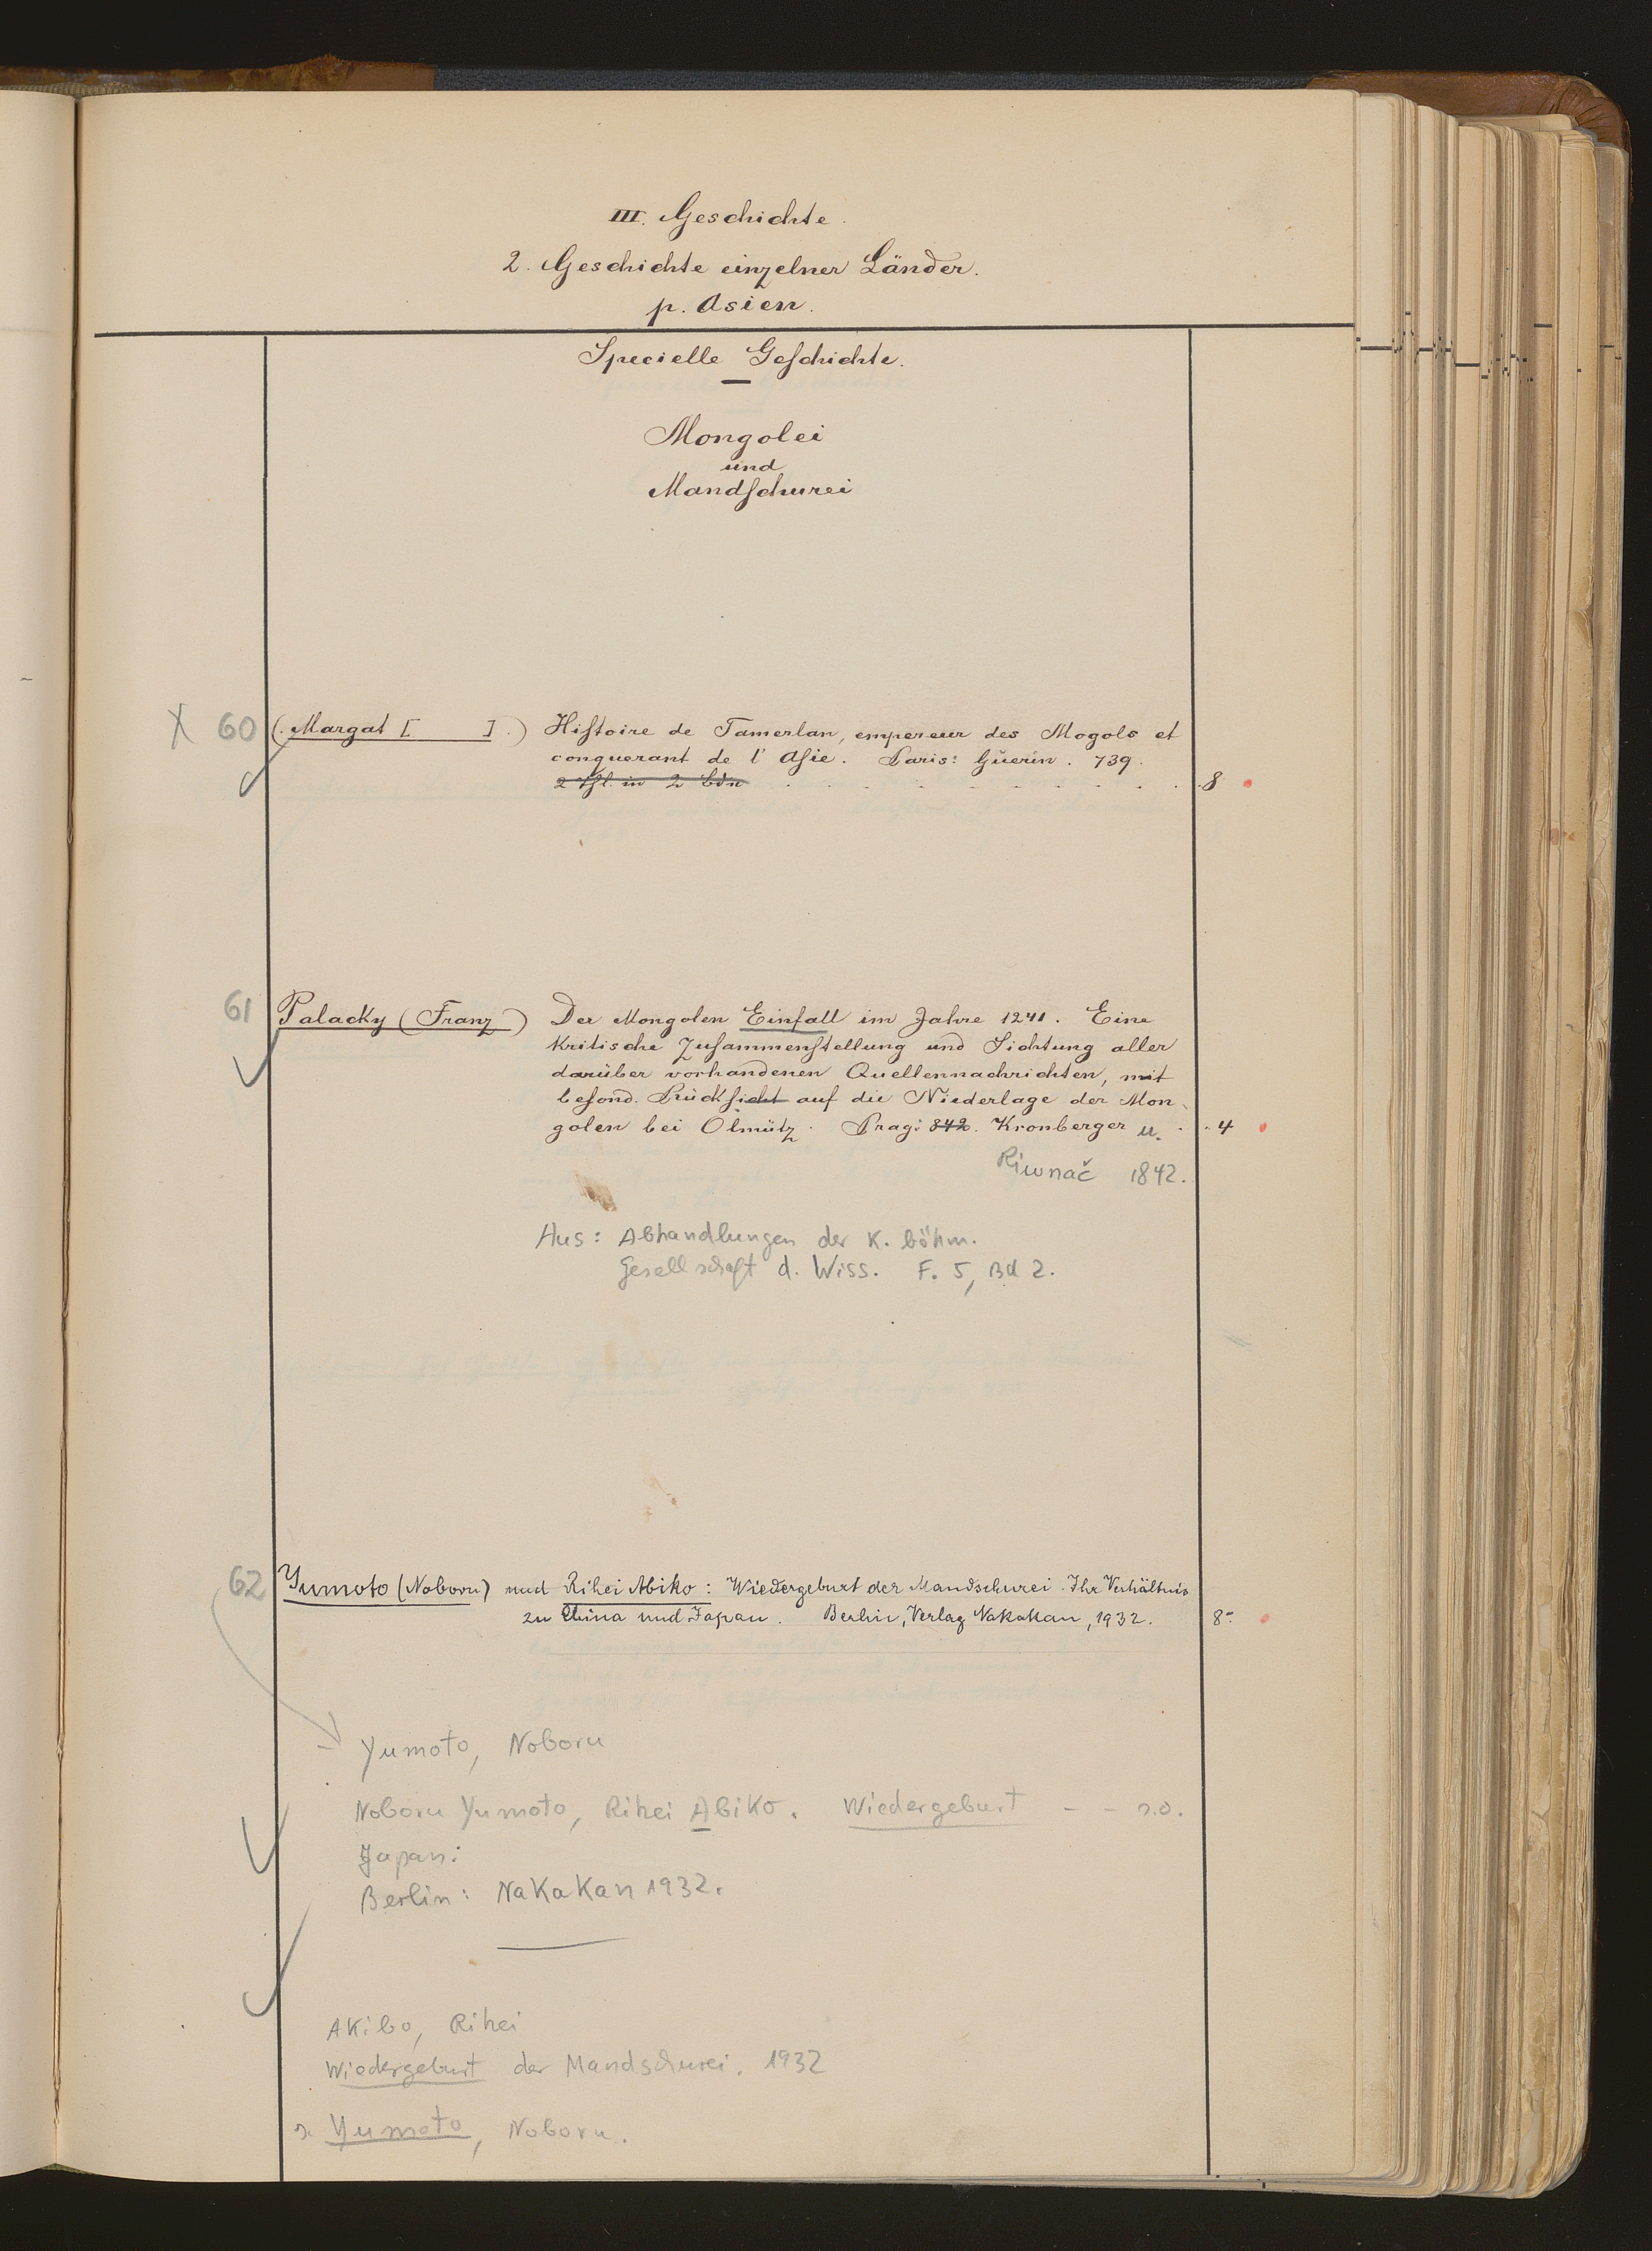 III. Geschichte.
2. Geschichte einzelner Länder.
p. Asien.
Specielle Geschichte.
Mongolei
und
Mandschurei
X 60 (Margat [ ].) Histoire de Tamerlan, empereur des Mogols et
conquerant de l'Asie. Paris: Guerin. 739.
2 Thl. in 2 Bdn . . . . . . . . . 8
61 Palacky (Franz) Der Mongolen Einfall im Jahre 1241. Eine
kritische Zusammenstellung und Sichtung aller
darüber vorhandenen Quellennachrichten, mit
besond. Rücksicht auf die Niederlage der Mon-
golen bei Olmütz. Prag: 842. Kronberger u. . . 4
Riwnač 1842.
Aus: Abhandlungen der K. böhm.
Gesellschaft d. Wiss. F. 5, Bd 2.
62 Yumoto (Noboru) und Rihei Abiko: Wiedergeburt der Mandschurei. Ihr Verhältnis
zu China und Japan. Berlin, Verlag Nakakan, 1932. 8°
Yumoto, Noboru
Noboru Yumoto, Rihei Abiko. Wiedergeburt - - s.o.
Japan:
Berlin: Nakakan 1932.
Akibo, Rihei
Wiedergeburt der Mandschurei. 1932
s. Yumoto, Noboru.